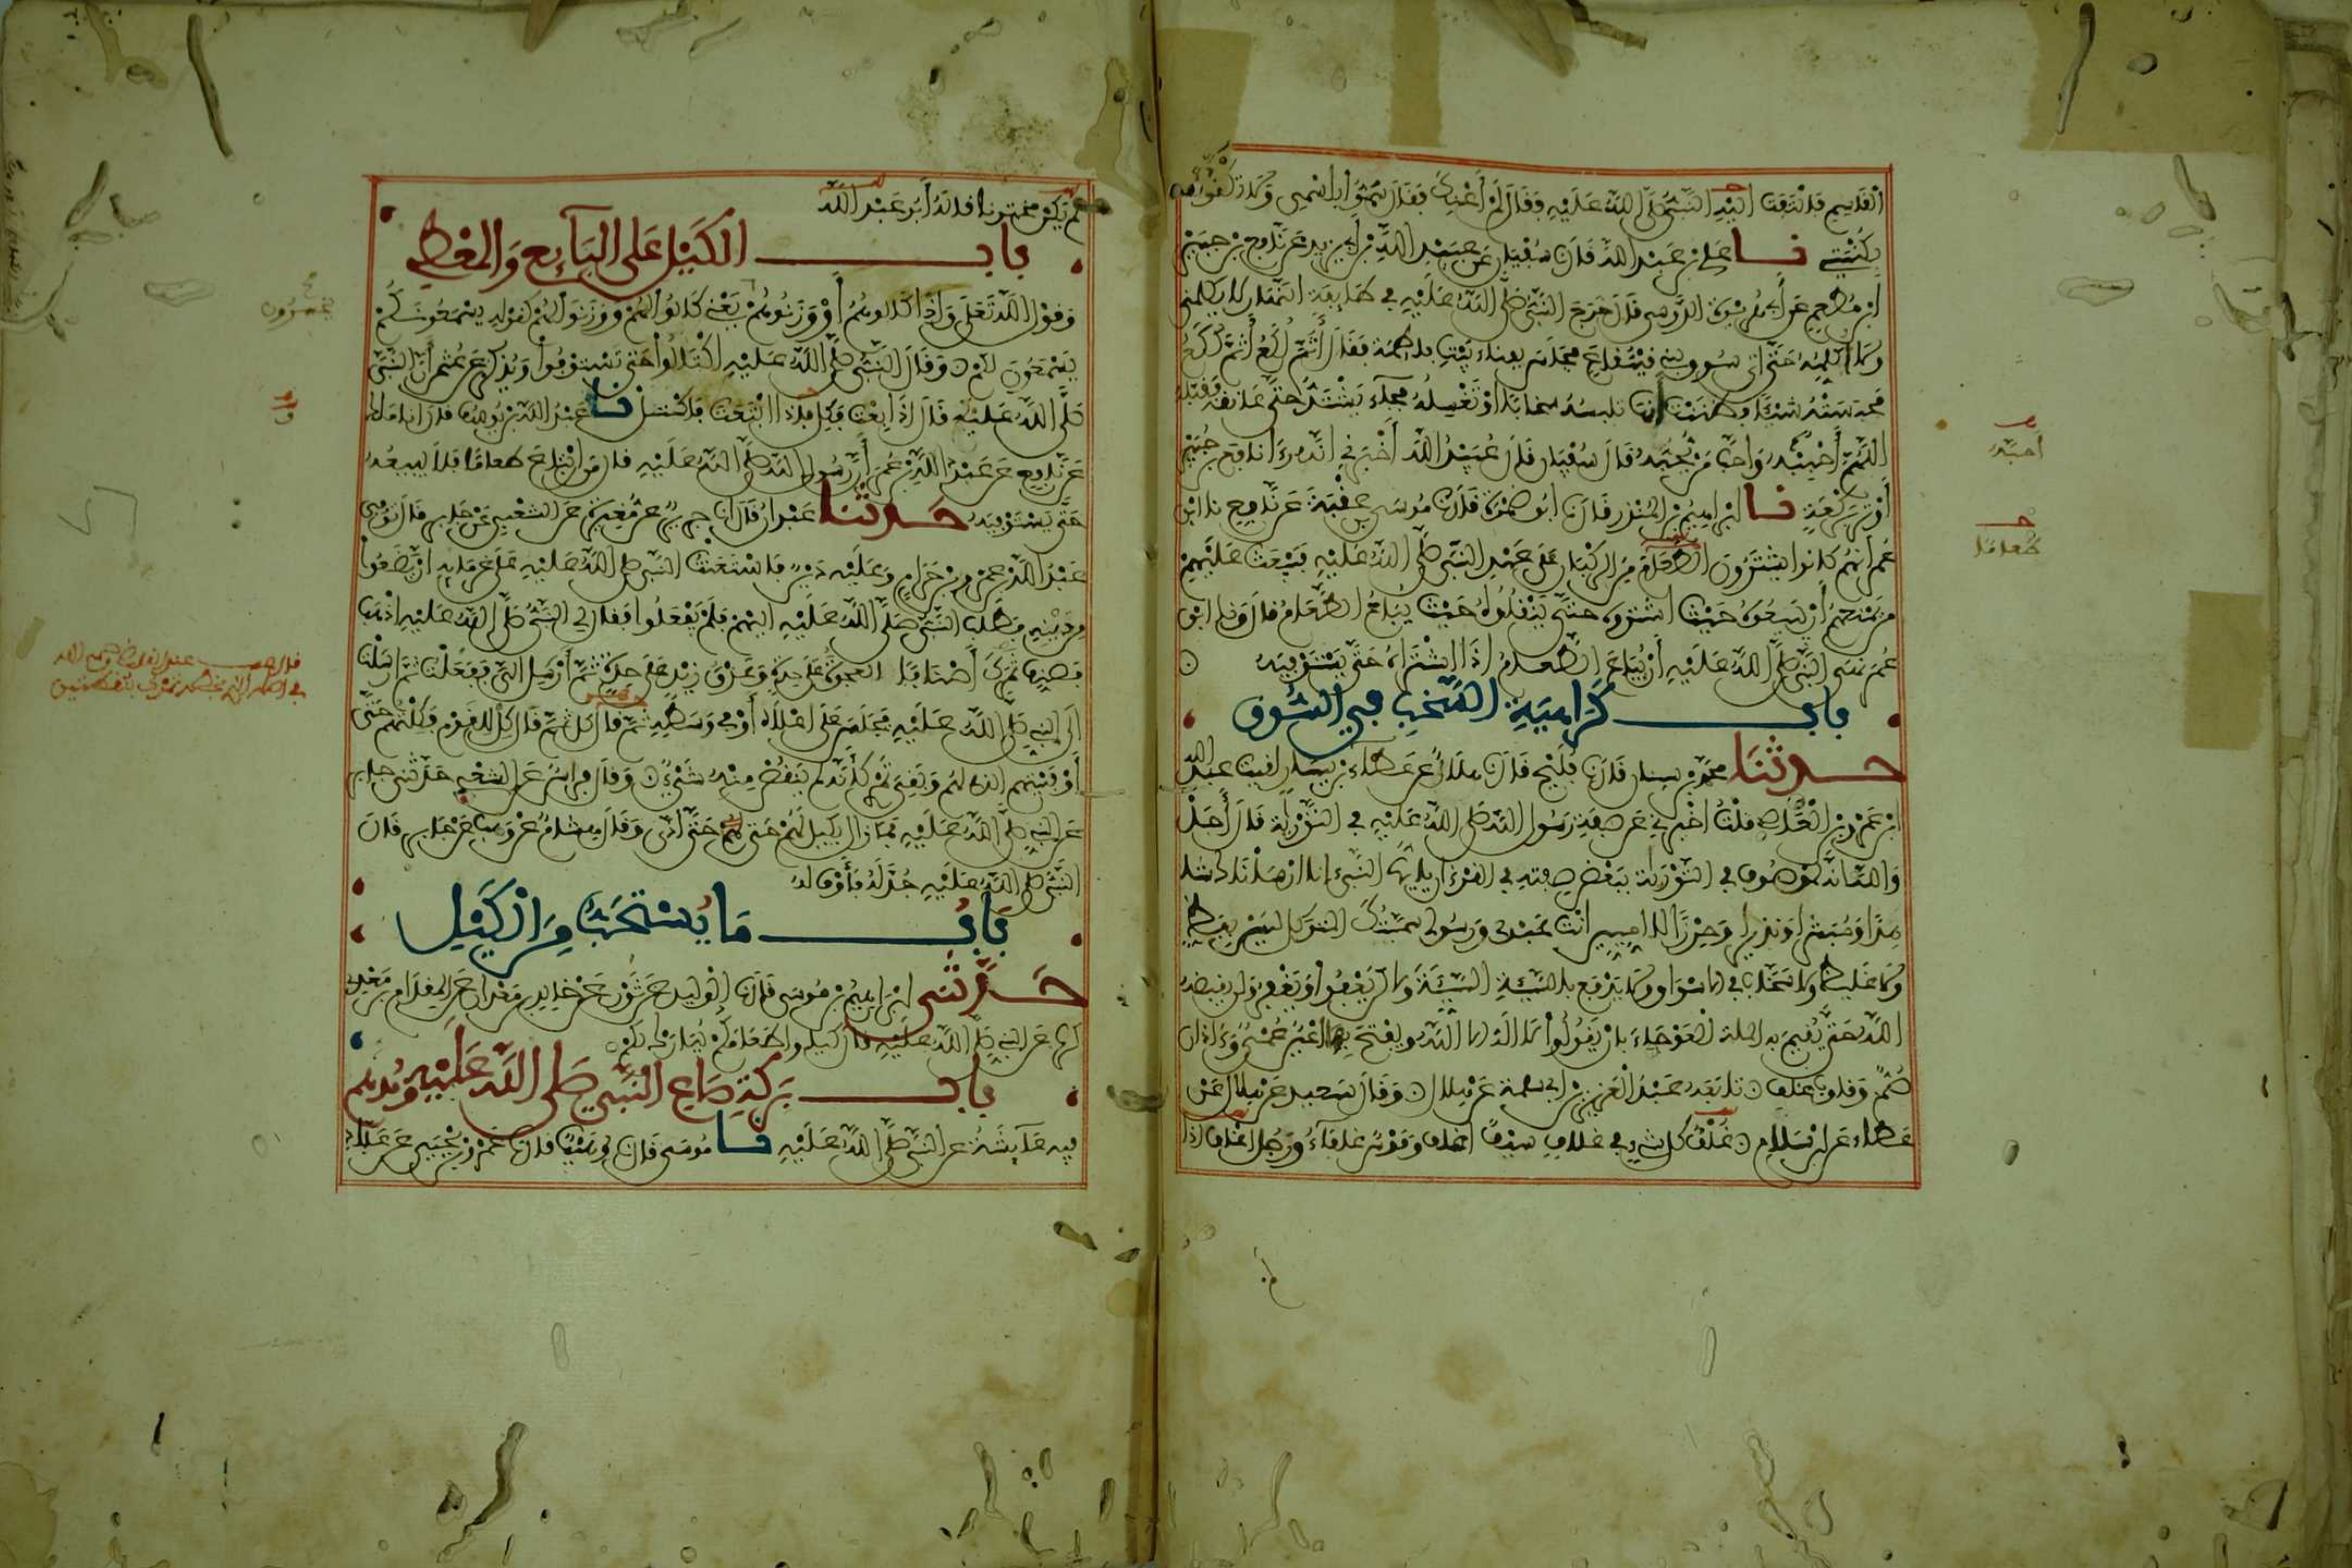 القاسم فالتفت اليه النبي صلى الله عليه فقال لم أعنك فقال سموا باسمي ولا تكنوا
بكنيتي نا علي بن عبد الله قال نا سفيان عن عبيد الله بن أبي يزيد عن نافع بن جبير
ابن مطعم عن أبي هريرة الدوسي قال خرج النبي صلى الله عليه في طايفة النهار لا يكلمني
ولا أكلمه حتى أتى سوق بني قينقاع فجلس بفناء بيت فاطمة فقال أثم لكع أثم لكع
فحبسته شيئا فظننت أنها تلبسه سخابا أو تغسله فجاء يشتد حتى عانقه وقبله
اللهم أحببه وأحب من يحبه قال سفيان قال عبيد الله أخبرني أنه رءا نافع بن جبير
أوتر بركعة نا إبراهيم بن المنذر قال نا أبو ضمرة قال نا موسى بن عقبة عن نافع نا ابن
عمر أنهم كانوا يشترون الطعام من الركبان على عهد النبي صلى الله عليه فيبعث عليهم
من يمنعهم أن يبيعوه حيث اشتروه حتى ينقلوه حيث يباع الطعام قال ونا ابن
عمر نهى النبي صلى الله عليه أن يباع الطعام إذا اشتراه حتى يستوفيه
باب كراهية السخب في السوق
حدثنا محمد بن سنان قال نا فليح قال نا هلال عن عطاء بن يسار لقيت عبد الله
ابن عمرو بن العاص قلت أخبرني عن صفة رسول الله صلى الله عليه في التورية قال أجل
والله انه لموصوف في التورية ببعض صفته في القرءان يا أيها النبي إنا ارسلناك شا
هدا ومبشرا ونذيرا وحرزا للاميين أنت عبدي ورسولي سميتك المتوكل ليس بفظ
ولا غليظ ولا سخاب في الاسواق ولا يدفع بالسيئة السيئة ولاكن يعفوا ويغفر ولن يقبضه
الله حتى يقيم به الملة العوجاء بان يقولوا لا اله الا الله ويفتح بها اعين عمي وءاذان
صم وقلوب غلف تابعه عبد العزيز بن أبي سلمة عن هلال وقال سعيد عن هلال عن
عطاء عن ابن سلام غلف كل شيء في غلاف سيف اغلف وقوس غلفاء ورجل اغلف اذا
احبه
طعاما
لم يكن مختونا قاله أبو عبد الله
باب الكيل على البايع والمعطي
وقول الله تعلى وإذا كالوهم أو وزنوهم يعني كالوا لهم ووزنوا لهم كقوله يسمعونكم
يسمعون لكم وقال النبي صلى الله عليه اكتالوا حتى تستوفوا ويذكر عن عثمن أن النبي
صلى الله عليه قال له إذا بعت فكل وإذا ابتعت فاكتل نا عبد الله بن يوسف قال انا مالك
عن نافع عن عبد الله بن عمر أن رسول الله صلى الله عليه قال من ابتاع طعاما فلا يبيعه
حتى يستوفيه حدثنا عبدان قال نا جرير عن مغيرة عن الشعبي عن جابر قال توفي
عبد الله بن عمرو بن حرام وعليه دين فاستعنت النبي صلى الله عليه على غرمايه ان يضعوا
من دينه فطلب النبي صلى الله عليه اليهم فلم يفعلوا فقال لي النبي صلى الله عليه اذهب
فصنف تمرك أصنافا العجوة على حدة وعذق زيد على حدة ثم أرسل الي ففعلت ثم ارسلت
الى النبي صلى الله عليه فجلس على اعلاه أو في وسطه ثم قال كل ثم قال كل للقوم فكلتهم حتى
أوفيتهم الذي لهم وبقي تمري كأنه لم ينقص منه شيء وقال فراس عن الشعبي حدثني جابر
عن النبي صلى الله عليه فما زال يكيل لهم حتى أدى وقال هشام عن وهب عن جابر قال
النبي صلى الله عليه جذ له فأوف له
باب ما يستحب من الكيل
حدثني إبراهيم بن موسى قال نا الوليد عن ثور عن خالد بن معدان عن المقدام بن معدي
كرب عن النبي صلى الله عليه قال كيلوا طعامكم يبارك لكم
باب بركة صاع النبي صلى الله عليه ومدهم
فيه عايشة عن النبي صلى الله عليه نا موسى قال نا وهيب قال نا عمرو بن يحيى عن عباد